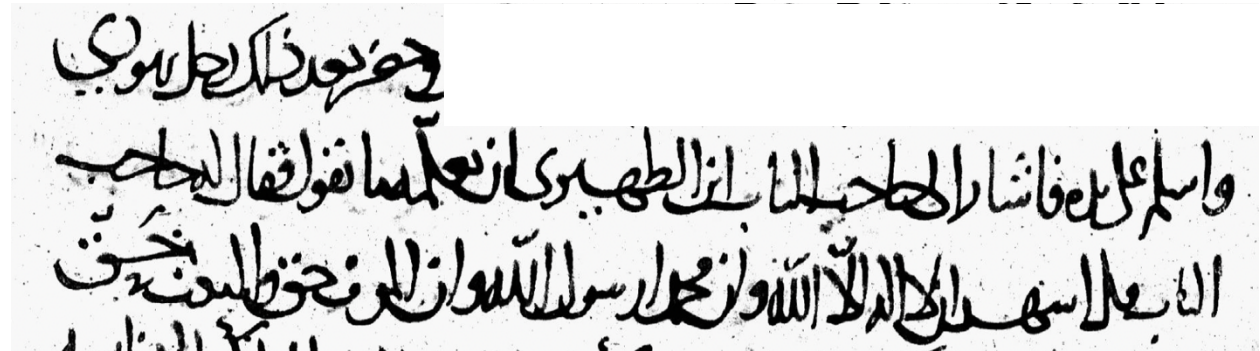 وحضر بعد ذلك رجل يهودي
واسلم على يده فاشار الى صاحب الباب ابن الطهيري ان يعلمه ما يقول فقال له حاجب
الباب قل اشهد ان لا اله الا الله وان محمدا رسول الله وان الموت حق والبعث حق